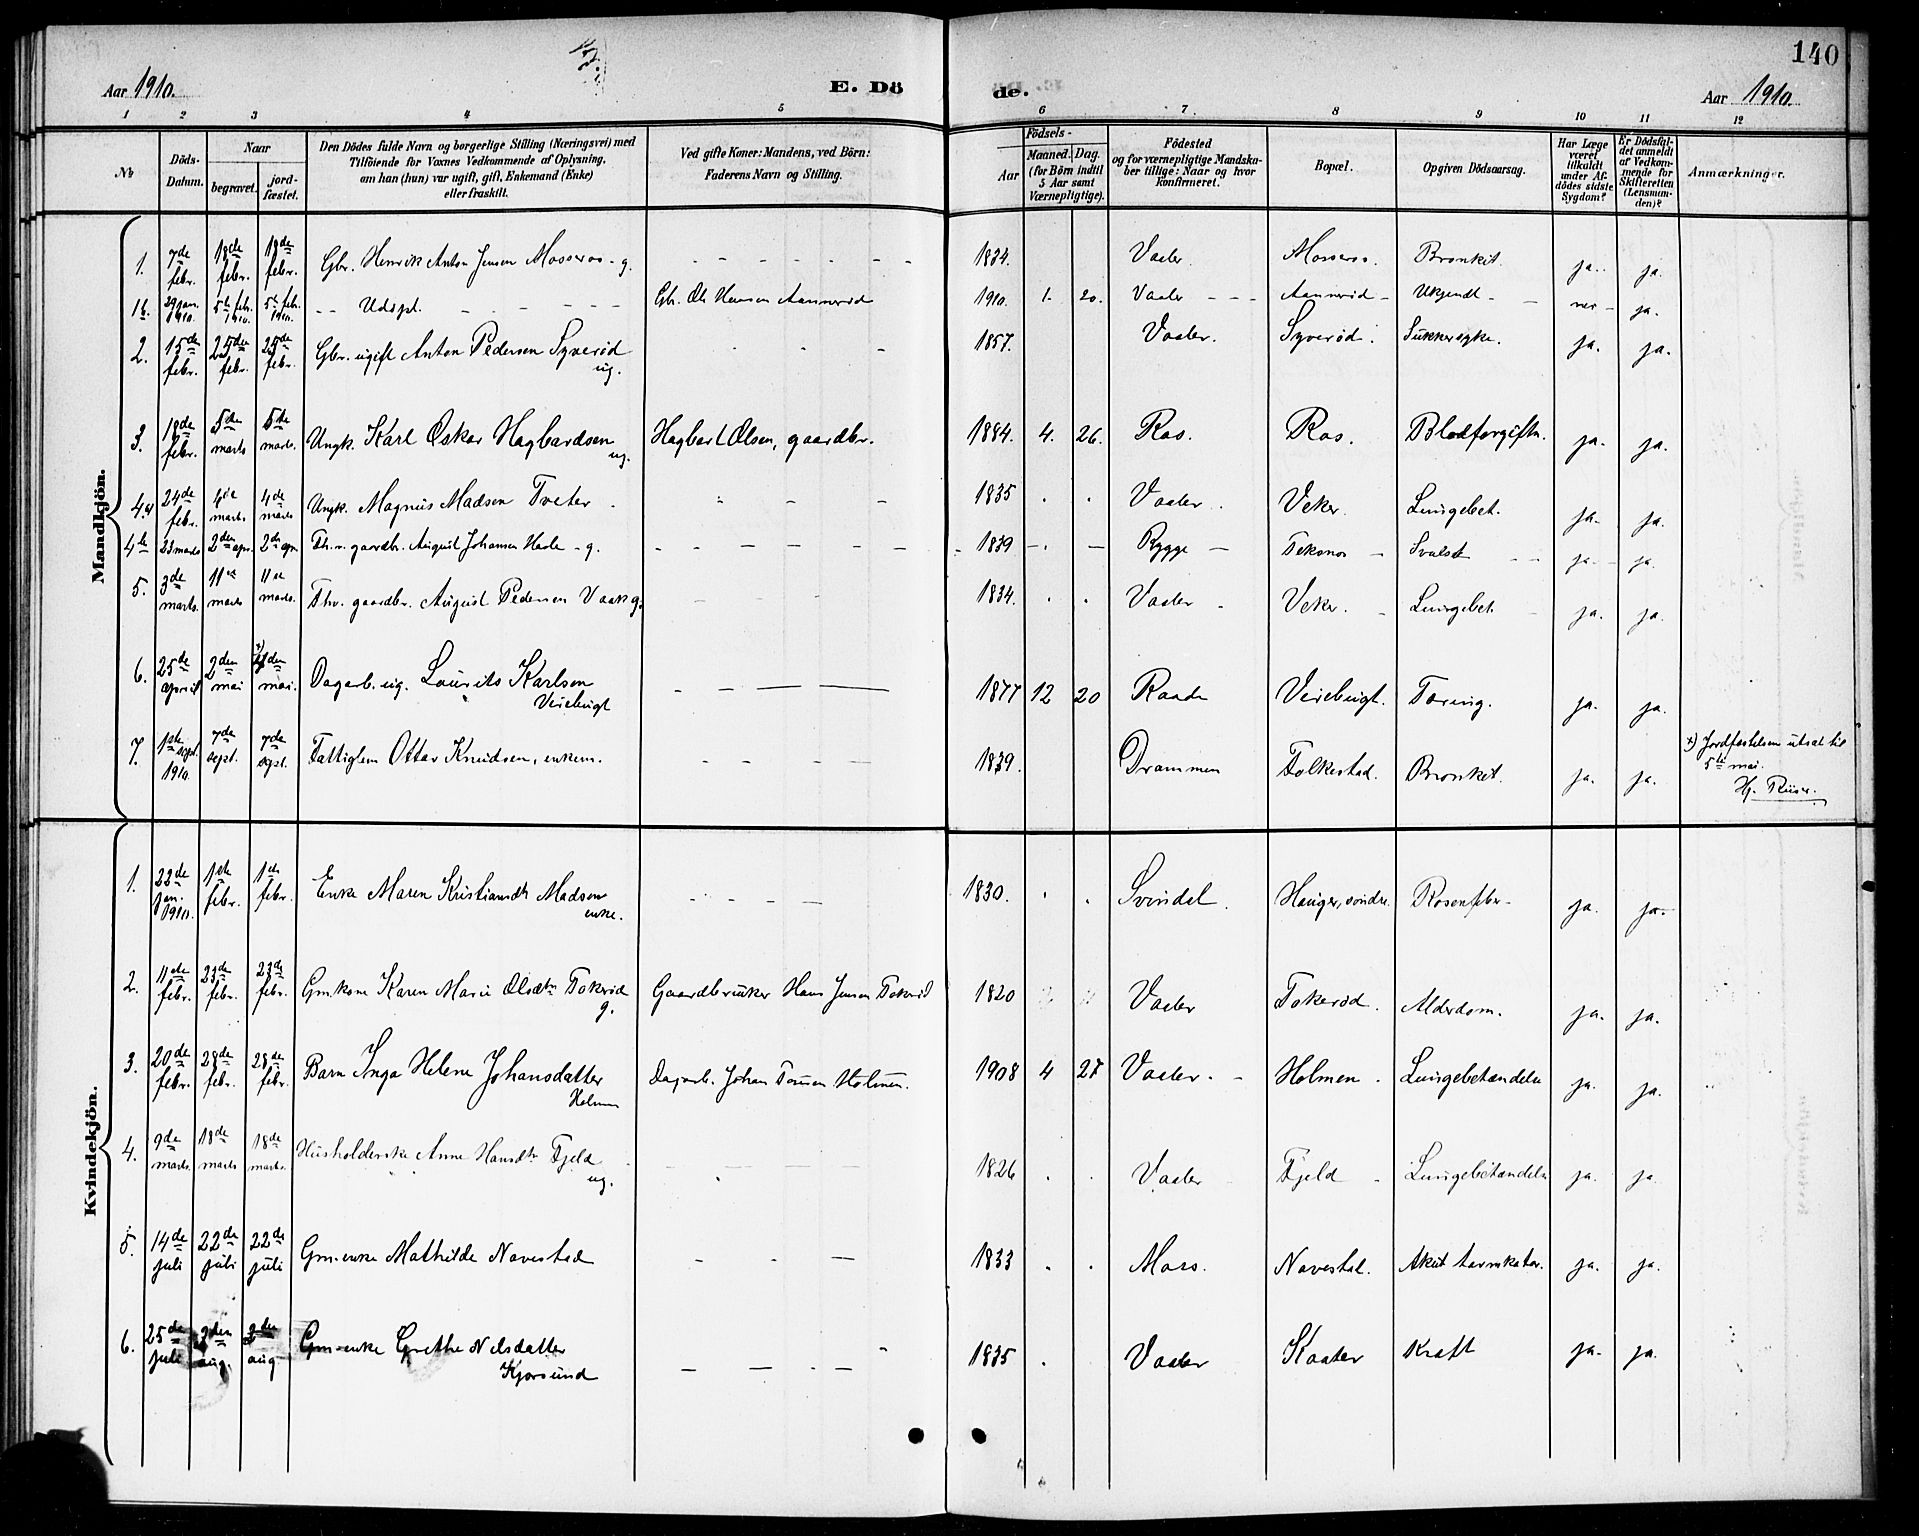 140
Aar 1910. E. Dö de. Aar 1910.
1 2 3 4 5 6 7 8 9 10 11 12
No
Döds-Datum.
Naar
begravet.
jordfæstet.
Den Dödes fulde Navn og borgerlige Stilling (Næringsvei) med
Tilföiende for Voxnes Vedkommende af Oplysning,
om han (hun) var ugift, gift, Enkemand (Enke)
eller fraskilt.
Ved gifte Koner: Mandens, ved Börn:
Faderens Navn og Stilling.
Födsels-
Aar
Maaned. Dag.
(for Börn indtil
5 Aar samt
Værnepligtige).
Födested
og for værnepligtige Mandska-
ber tillige: Naar og hvor
Konfirmeret.
Bopæl.
Opgiven Dödsaarsag.
Har Læge
været
tilkaldt
under Af-
dödes sidste
Sygdom?
Er Dödsfal-
det anmeldt
af Vedkom-
mende for
Skifteretten
(Lensman-
den)?
Anmærkninger.
Mandkjön.
1. 7de febr. 18de febr. 18de febr. Gbr. Henrik Anton Jensen Mosseros - g. - - - - - - 1834. Vaaler. Mosseros. Bronkit. ja. ja.
1b. 29 jan. 1910. 5te febr. 1910. 5te febr. 1910. - - Udøpt. - - - - Gbr. Ole Hansen Aannerød 1910. 1. 20. Vaaler - - - Aannerød - Ukjendt - - nei - ja.
2. 15de febr. 25de febr. 25de febr. Gbr. ugift Anton Pedersen Syverød ug. 1857. Vaaler. Syverød. Sukkersyke. ja. ja.
3. 18de febr. 5te marts 5te marts. Ungk. Karl Oskar Hagbardsen ug. Hagbart Olsen, gaardbr. 1884. 4. 26. Ros. Ros. Blodforgiftn. ja. ja.
4.a 24de febr. 4de marts 4de marts Ungk. Magnus Madsen Tveter. 1835 . . Vaaler. Veker. Lungebet. ja. ja.
4b 23 marts 2den apr. 2den apr. Fh.v. gaardbr. August Johansen Hasle - g. - - - - - - 1839 - . - Rygge - Teksnes - Svulst - - ja. - ja.
5. 3de marts. 11te marts 11te marts. Fhv. gaardbr. August Pedersen Vaak g. - - - 1834. . . Vaaler. Veker. - Lungebet. - ja. ja.
6. 25de april 2den mai x) 2den mai. Dagarb. ug. Laurits Karlsen Veiebugt - - — — 1877 12 20 Raade Veiebugt. Tæring. ja. ja.
7. 1ste sept. 1910. 7de sept. 7de sept. Fattiglem Ottar Knudsen, enkem. - - - - 1839. Drammen Folkestad. Bronkit. ja. ja.
x) Jordfæstelsen utsat til
5te mai.
Hj. Riiser.
Kvindekjön.
1. 22de jan. 1910. 1ste febr. 1ste febr. Enke Maren Kristiansdtr Madsen enke. - - - - 1830. . . Svindal. Hauger, søndre. Rosenfeber - ja. ja.
2. 11de febr. 23de febr. 23de febr. Gm.kone Karen Marie Olsdtr Tokerød g. Gaardbruker Hans Jensen Tokerød 1820 Vaaler Tokerød. Alderdom. ja. ja.
3. 20de febr. 28de febr. 28de febr. Barn Inga Helene Johansdatter Holmen Dagarb. Johan Holmen. 1908 4 27 Vaaler. - Holmen. Lungebetændelse ja. ja.
4. 9de marts. 18de marts 18de marts. Husholderske Anne Hansdtr Fjeld ug. - - - - 1826 . . Vaaler Fjeld - Lungebetændelse ja. ja.
5. 14de juli 22de juli 22de juli Gm.enke Mathilde Navestad - - — 1833 . . Moss. Navestad. Akut tarmkatar. ja. ja.
6. 25de juli 2den aug. 2den aug Gm-enke Grethe Nilsdatter Kjørsund - - - - 1835 . Vaaler Kaater Kræft ja. ja.